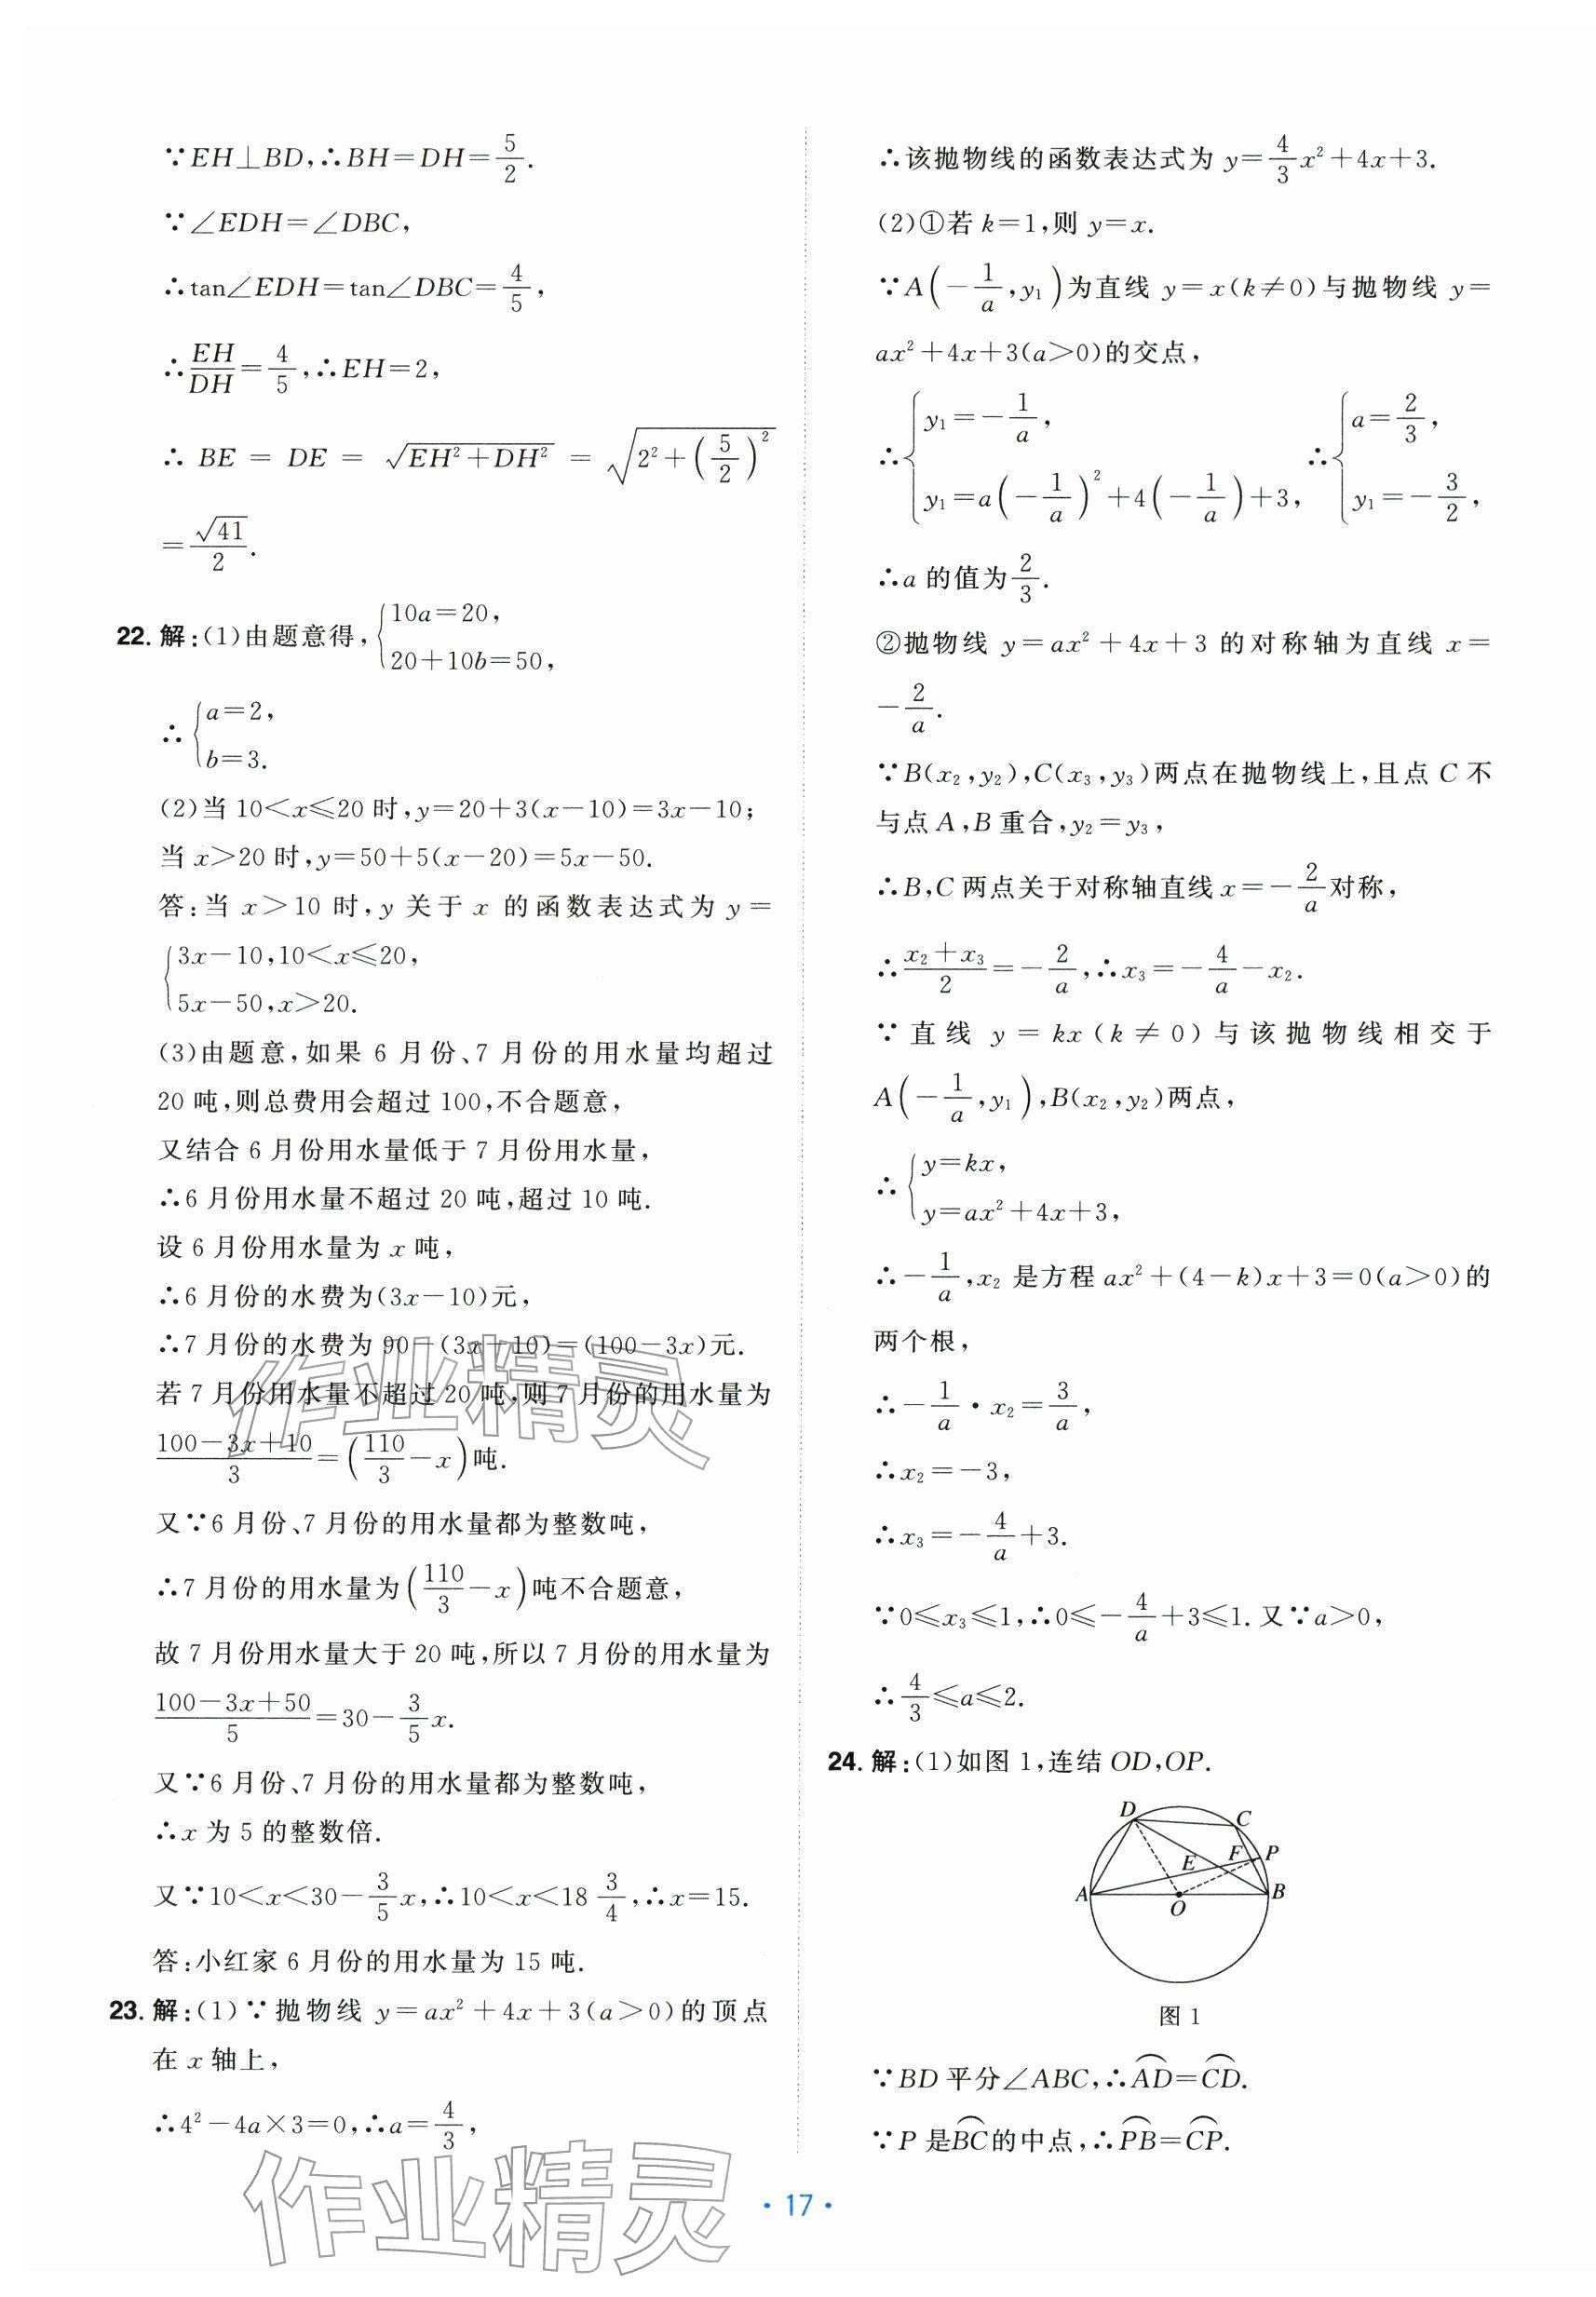 ∵EH⊥BD,∴BH=DH=5/2.
∵∠EDH=∠DBC,
∴tan∠EDH=tan∠DBC=4/5,
∴EH/DH=4/5,∴EH=2,
∴ BE = DE = √(EH²+DH²) = √(2²+(5/2)²)
=√41/2.
22. 解:(1)由题意得,{10a=20,
20+10b=50,
∴{a=2,
b=3.
(2)当 10<x≤20 时,y=20+3(x-10)=3x-10;
当 x>20 时,y=50+5(x-20)=5x-50.
答:当 x>10 时,y 关于 x 的函数表达式为 y=
{3x-10,10<x≤20,
5x-50,x>20.
(3)由题意,如果 6 月份、7 月份的用水量均超过
20 吨,则总费用会超过 100,不合题意,
又结合 6 月份用水量低于 7 月份用水量,
∴6 月份用水量不超过 20 吨,超过 10 吨.
设 6 月份用水量为 x 吨,
∴6 月份的水费为(3x-10)元,
∴7 月份的水费为 90-(3x+10)=(100-3x)元.
若 7 月份用水量不超过 20 吨,则 7 月份的用水量为
(100-3x+10)/3=(110/3-x)吨.
又∵6 月份、7 月份的用水量都为整数吨,
∴7 月份的用水量为(110/3-x)吨不合题意,
故 7 月份用水量大于 20 吨,所以 7 月份的用水量为
(100-3x+50)/5=30-3/5x.
又∵6 月份、7 月份的用水量都为整数吨,
∴x 为 5 的整数倍.
又∵10<x<30-3/5x,∴10<x<18 3/4,∴x=15.
答:小红家 6 月份的用水量为 15 吨.
23. 解:(1)∵抛物线 y=ax²+4x+3(a>0)的顶点
在 x 轴上,
∴4²-4a×3=0,∴a=4/3,
∴该抛物线的函数表达式为 y=4/3x²+4x+3.
(2)①若 k=1,则 y=x.
∵A(-1/a,y₁)为直线 y=x(k≠0)与抛物线 y=
ax²+4x+3(a>0)的交点,
∴{y₁=-1/a,
y₁=a(-1/a)²+4(-1/a)+3,∴{a=2/3,
y₁=-3/2,
∴a 的值为2/3.
②抛物线 y=ax²+4x+3 的对称轴为直线 x=
-2/a.
∵B(x₂,y₂),C(x₃,y₃)两点在抛物线上,且点 C 不
与点 A,B 重合,y₂=y₃,
∴B,C 两点关于对称轴直线 x=-2/a对称,
∴(x₂+x₃)/2=-2/a,∴x₃=-4/a-x₂.
∵直线 y=kx(k≠0)与该抛物线相交于
A(-1/a,y₁),B(x₂,y₂)两点,
∴{y=kx,
y=ax²+4x+3,
∴-1/a,x₂ 是方程 ax²+(4-k)x+3=0(a>0)的
两个根,
∴-1/a·x₂=3/a,
∴x₂=-3,
∴x₃=-4/a+3.
∵0≤x₃≤1,∴0≤-4/a+3≤1.又∵a>0,
∴4/3≤a≤2.
24. 解:(1)如图 1,连结 OD,OP.
D
C
F P
E
A
B
O
图 1
∵BD 平分∠ABC,∴⌒AD=⌒CD.
∵P 是⌒BC的中点,∴⌒PB=⌒CP.
·17·
作业精灵
作业精灵